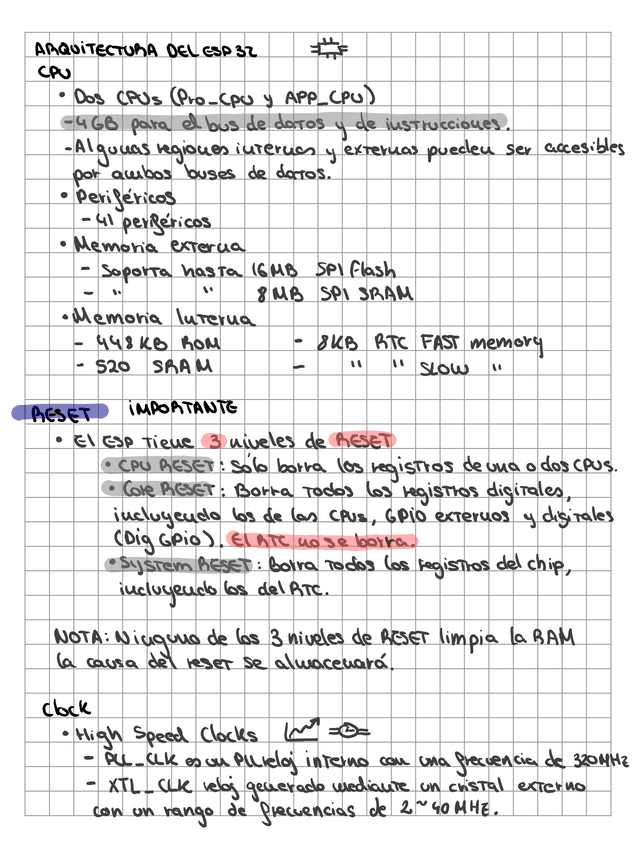 ARQUITECTURA DEL ESP32
CPU
• Dos CPUs (Pro_CPU y APP_CPU)
- 4GB para el bus de datos y de instrucciones.
- Algunas regiones internas y externas pueden ser accesibles
por ambos buses de datos.
• Periféricos
- 41 periféricos
• Memoria externa
- Soporta hasta 16MB SPI Flash
- " " 8MB SPI SRAM
• Memoria Interna
- 448KB ROM - 8KB RTC FAST memory
- 520 SRAM - " " SLOW "
RESET IMPORTANTE
• El ESP tiene 3 niveles de RESET
• CPU RESET: Sólo borra los registros de una o dos CPUs.
• Core RESET: Borra todos los registros digitales,
incluyendo los de las CPUs, GPIO externos y digitales
(Dig GPIO). El RTC no se borra.
• System RESET: Borra todos los registros del chip,
incluyendo los del RTC.
NOTA: Ninguno de los 3 niveles de RESET limpia la RAM
la causa del reset se almacenará.
Clock
• High Speed Clocks
- PLL_CLK es un PLL reloj interno con una frecuencia de 320MHz
- XTL_CLK reloj generado mediante un cristal externo
con un rango de frecuencias de 2~40MHz.